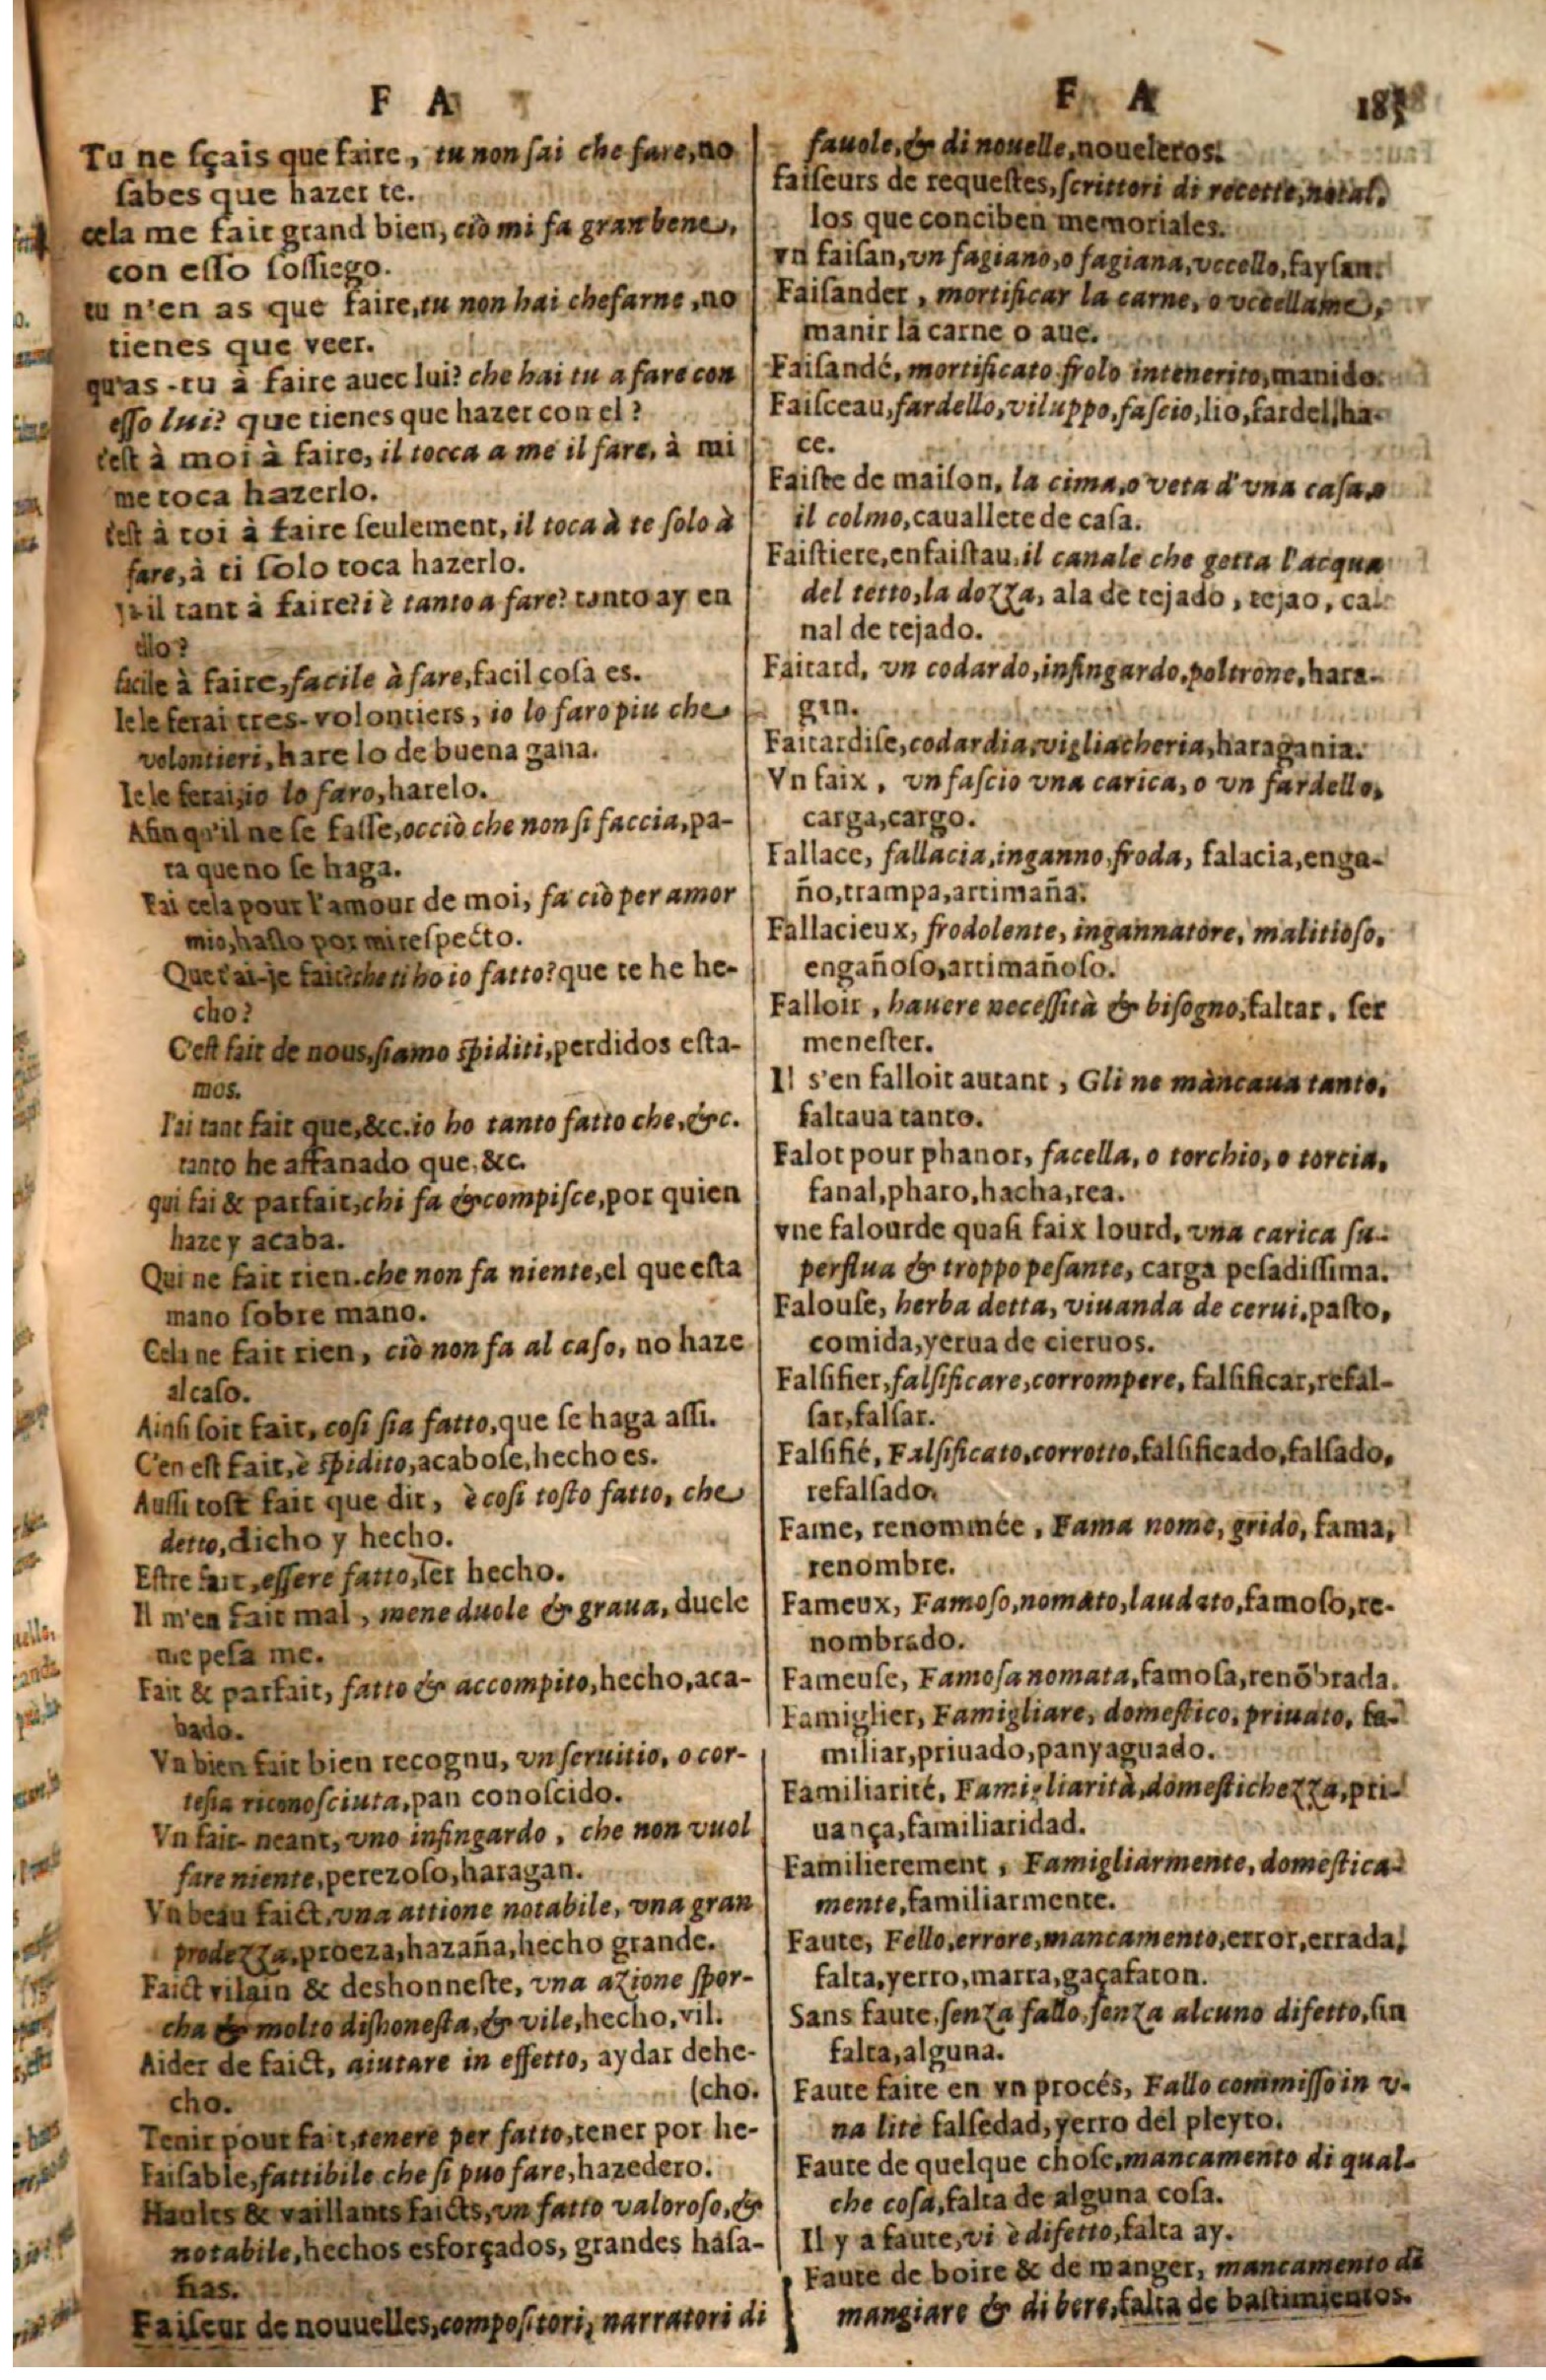 F A
Tu ne sçais que faire, tu non sai che fare, no
sabes que hazer te.
cela me fait grand bien, ciò mi fa gran bene,
con esso sossiego.
tu n'en as que faire, tu non hai che farne, no
tienes que veer.
qu'as-tu à faire auec lui? che hai tu a fare con
esso lui? que tienes que hazer con el?
c'est à moi à faire, il tocca a me il fare, à mi
me toca hazerlo.
c'est à toi à faire seulement, il toca à te solo à
fare, à ti solo toca hazerlo.
il tant à faire? i è tanto a fare? tanto ay en
ello?
facile à faire, facile à fare, facil cosa es.
Ie le ferai tres-volontiers, io lo faro piu che
volontieri, hare lo de buena gana.
Ie le ferai, io lo faro, harelo.
Afin qu'il ne se fasse, occiò che non si faccia, pa-
ra que no se haga.
Fai cela pour l'amour de moi, fa ciò per amor
mio, hazlo por mi respecto.
Que t'ai-je fait? che ti ho io fatto? que te he he-
cho?
C'est fait de nous, siamo spiditi, perdidos esta-
mos.
I'ai tant fait que, &c. io ho tanto fatto che, &c.
tanto he affanado que, &c.
qui fai & parfait, chi fa & compisce, por quien
haze y acaba.
Qui ne fait rien. che non fa niente, el que esta
mano sobre mano.
Cela ne fait rien, ciò non fa al caso, no haze
al caso.
Ainsi soit fait, cosi sia fatto, que se haga assi.
C'en est fait, è spidito, acabose, hecho es.
Aussi tost fait que dit, è cosi tosto fatto, che
detto, dicho y hecho.
Estre fait, essere fatto, ser hecho.
Il m'en fait mal, mene duole & graua, duele
me pesa me.
Fait & parfait, fatto & accompito, hecho, aca-
bado.
Vn bien fait bien recognu, vn seruitio, o cor-
tesia riconosciuta, pan conoscido.
Vn fait-neant, vno infingardo, che non vuol
fare niente, perezoso, haragan.
Vn beau faict, vna attione notabile, vna gran
prodezza, proeza, hazaña, hecho grande.
Faict vilain & deshonneste, vna azione spor-
cha & molto dishonesta, & vile, hecho, vil.
Aider de faict, aiutare in effetto, aydar dehe-
cho. (cho.
Tenir pour fait, tenere per fatto, tener por he-
Faisable, fattibile che si puo fare, hazedero.
Haults & vaillants faicts, vn fatto valoroso, &
notabile, hechos esforçados, grandes hasa-
ñas.
Faiseur de nouuelles, compositori, narratori di
F A
fauole, & di nouelle, noueleros.
faiseurs de requestes, scrittori di recette, notal.
los que conciben memoriales.
vn faisan, vn fagiano, o fagiana, vccello, faysan.
Faisander, mortificar la carne, o vccellame,
manir la carne o aue.
Faisandé, mortificato frolo intenerito, manido.
Faisceau, fardello, viluppo, fascio, lio, fardel, ha-
ce.
Faiste de maison, la cima, o veta d'vna casa, o
il colmo, cauallete de casa.
Faistiere, enfaistau, il canale che getta l'acqua
del tetto, la dozza, ala de tejado, tejao, ca-
nal de tejado.
Faitard, vn codardo, infingardo, poltrone, hara-
gan.
Faitardise, codardia, vigliacheria, haragania.
Vn faix, vn fascio vna carica, o vn fardello,
carga, cargo.
Fallace, fallacia, inganno, froda, falacia, enga-
ño, trampa, artimaña.
Fallacieux, frodolente, ingannatore, malitioso,
engañoso, artimañoso.
Falloir, hauere necessità & bisogno, faltar, ser
menester.
Il s'en falloit autant, Gli ne mancaua tanto,
faltaua tanto.
Falot pour phanot, facella, o torchio, o torcia,
fanal, pharo, hacha, tea.
vne falourde quasi faix lourd, vna carica su-
perflua & troppo pesante, carga pesadissima.
Falouse, herba detta, viuanda de cerui, pasto,
comida, yerua de cieruos.
Falsifier, falsificare, corrompere, falsificar, refal-
sar, falsar.
Falsifié, Falsificato, corrotto, falsificado, falsado,
refalsado.
Fame, renommée, Fama nome, grido, fama,
renombre.
Fameux, Famoso, nomato, laudato, famoso, re-
nombrado.
Fameuse, Famosa nomata, famosa, renõbrada.
Famiglier, Famigliare, domestico, priuato, fa-
miliar, priuado, panyaguado.
Familiarité, Famigliarità, domestichezza, pri-
uança, familiaridad.
Familierement, Famigliarmente, domestica-
mente, familiarmente.
Faute, Fello, errore, mancamento, error, errada,
falta, yerro, marra, gaçafaton.
Sans faute, senza fallo, senza alcuno difetto, sin
falta, alguna.
Faute faite en vn procés, Fallo commisso in v-
na lite falsedad, yerro del pleyto.
Faute de quelque chose, mancamento di qual-
che cosa, falta de alguna cosa.
Il y a faute, vi è difetto, falta ay.
Faute de boire & de manger, mancamento di
mangiare & di bere, falta de bastimientos.